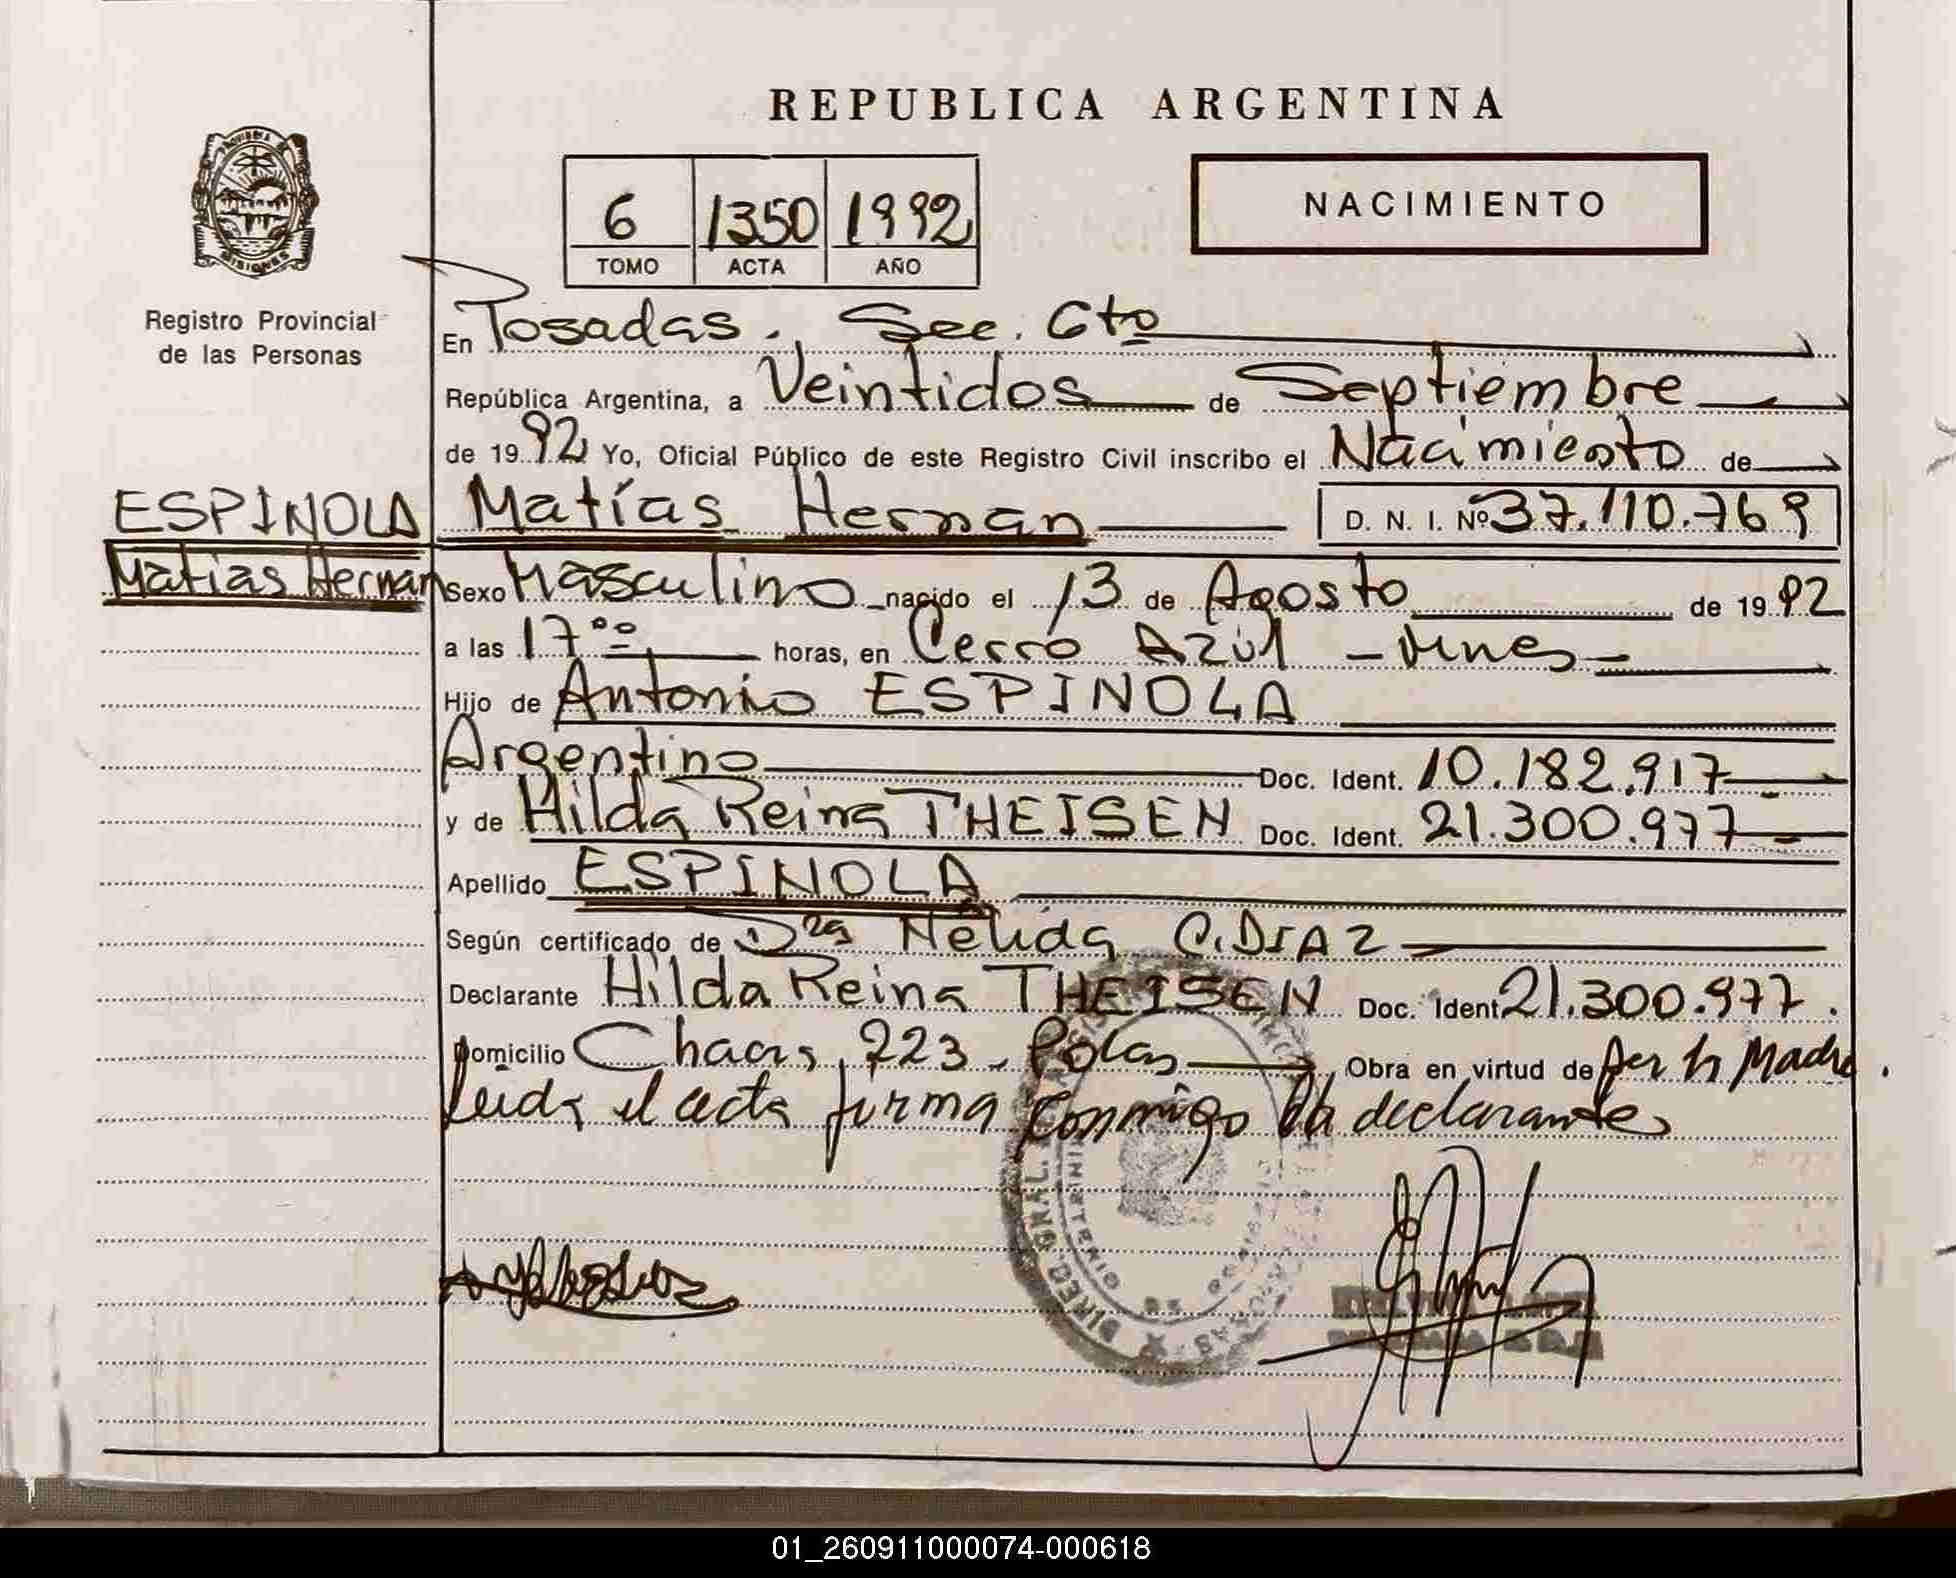 REPUBLICA ARGENTINA
PROVINCIA DE MISIONES
Registro Provincial
de las Personas
6 1350 1992
TOMO ACTA AÑO
NACIMIENTO
En Posadas. Sec. 6to
República Argentina, a Veintidos de Septiembre
de 1992 Yo, Oficial Público de este Registro Civil inscribo el Nacimiento de
ESPINOLA
Matías Hernan D. N. I. Nº 37.110.769
Matias Hernan
Sexo Masculino nacido el 13 de Agosto de 1992
a las 17⁰⁰ horas, en Cerro Azul -
Hijo de Antonio ESPINOLA
Argentino Doc. Ident. 10.182.917
y de Hilda Reina THEISEN Doc. Ident. 21.300.977
Apellido ESPINOLA
Según certificado de Dra Nélida C. DIAZ
Declarante Hilda Reina THEISEN Doc. Ident 21.300.977.
Domicilio Chacra 223 - Pdas Obra en virtud de ser la Madre.
Leida el acta firma conmigo la declarante
DIREC. GRAL.
MINISTERIO DE
01_260911000074-000618